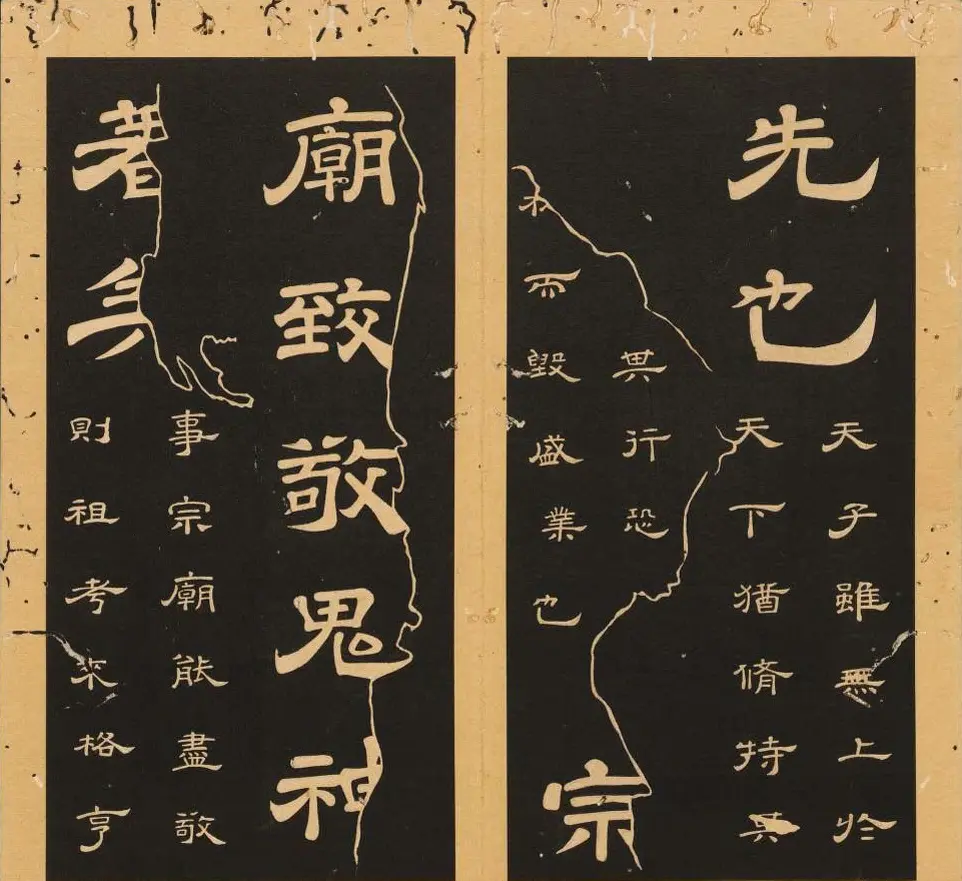 先也
天子雖無上於
天下猶脩持其
其行恐
而毀盛業也
宗
廟致敬鬼神
著矣
事宗廟能盡敬
則祖考來格亨